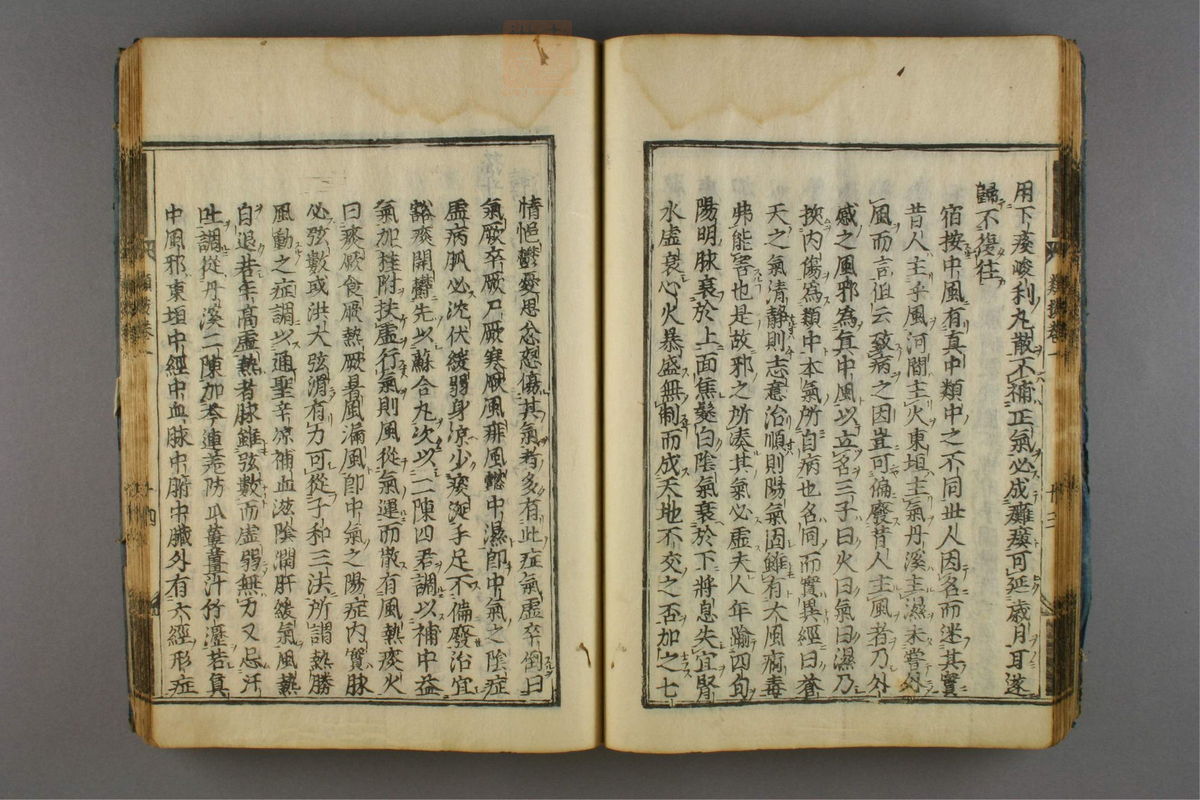 用下痰峻利丸散不補正氣必成癱瘓可延歲月耳遂
歸不復往
宿按中風有真中類中之不同世人因名而迷其實
昔人主乎風河間主火東垣主氣丹溪主濕未嘗外
風而言但云致病之因豈可偏廢昔人主風者乃外
感之風邪為真中風以立名三子曰火曰氣曰濕乃
挾內傷為類中本氣所自病也名同而實異經曰蒼
天之氣清靜則志意治順則陽氣固雖有大風疴毒
弗能害也是故邪之所湊其氣必虛夫人年踰四旬
陽明脉衰於上面焦髮白陰氣衰於下將息失宜腎
水虛衰心火暴盛無制而成天地不交之否加之七
類 卷一
十三
情悒鬱憂思忿怒傷其氣者多有此症氣虛卒倒曰
氣厥卒厥尸厥寒厥風痱風 中濕即中氣之陰症
虛病肌必沈伏緩弱身涼少痰涎手足不偏廢治宜
豁痰開欝先以蘇合丸次以二陳四君調以補中益
氣加桂附扶虛行氣則風從氣運而散有風熱痰火
曰痰厥食厥熱厥暑風漏風即中氣之陽症內實脉
必弦數或洪大弦滑有力可從子和三法所謂熱勝
風動之症調以通聖辛涼補血滋陰潤肝緩氣風熱
自退若年高虛熱者脉雖弦數而虛弱無力又忌汗
吐調從丹溪二陳加芩連羌防瓜蔞薑汁竹瀝若真
中風邪東垣中經中血脉中腑中臟外有六經形症
類 卷一
十四